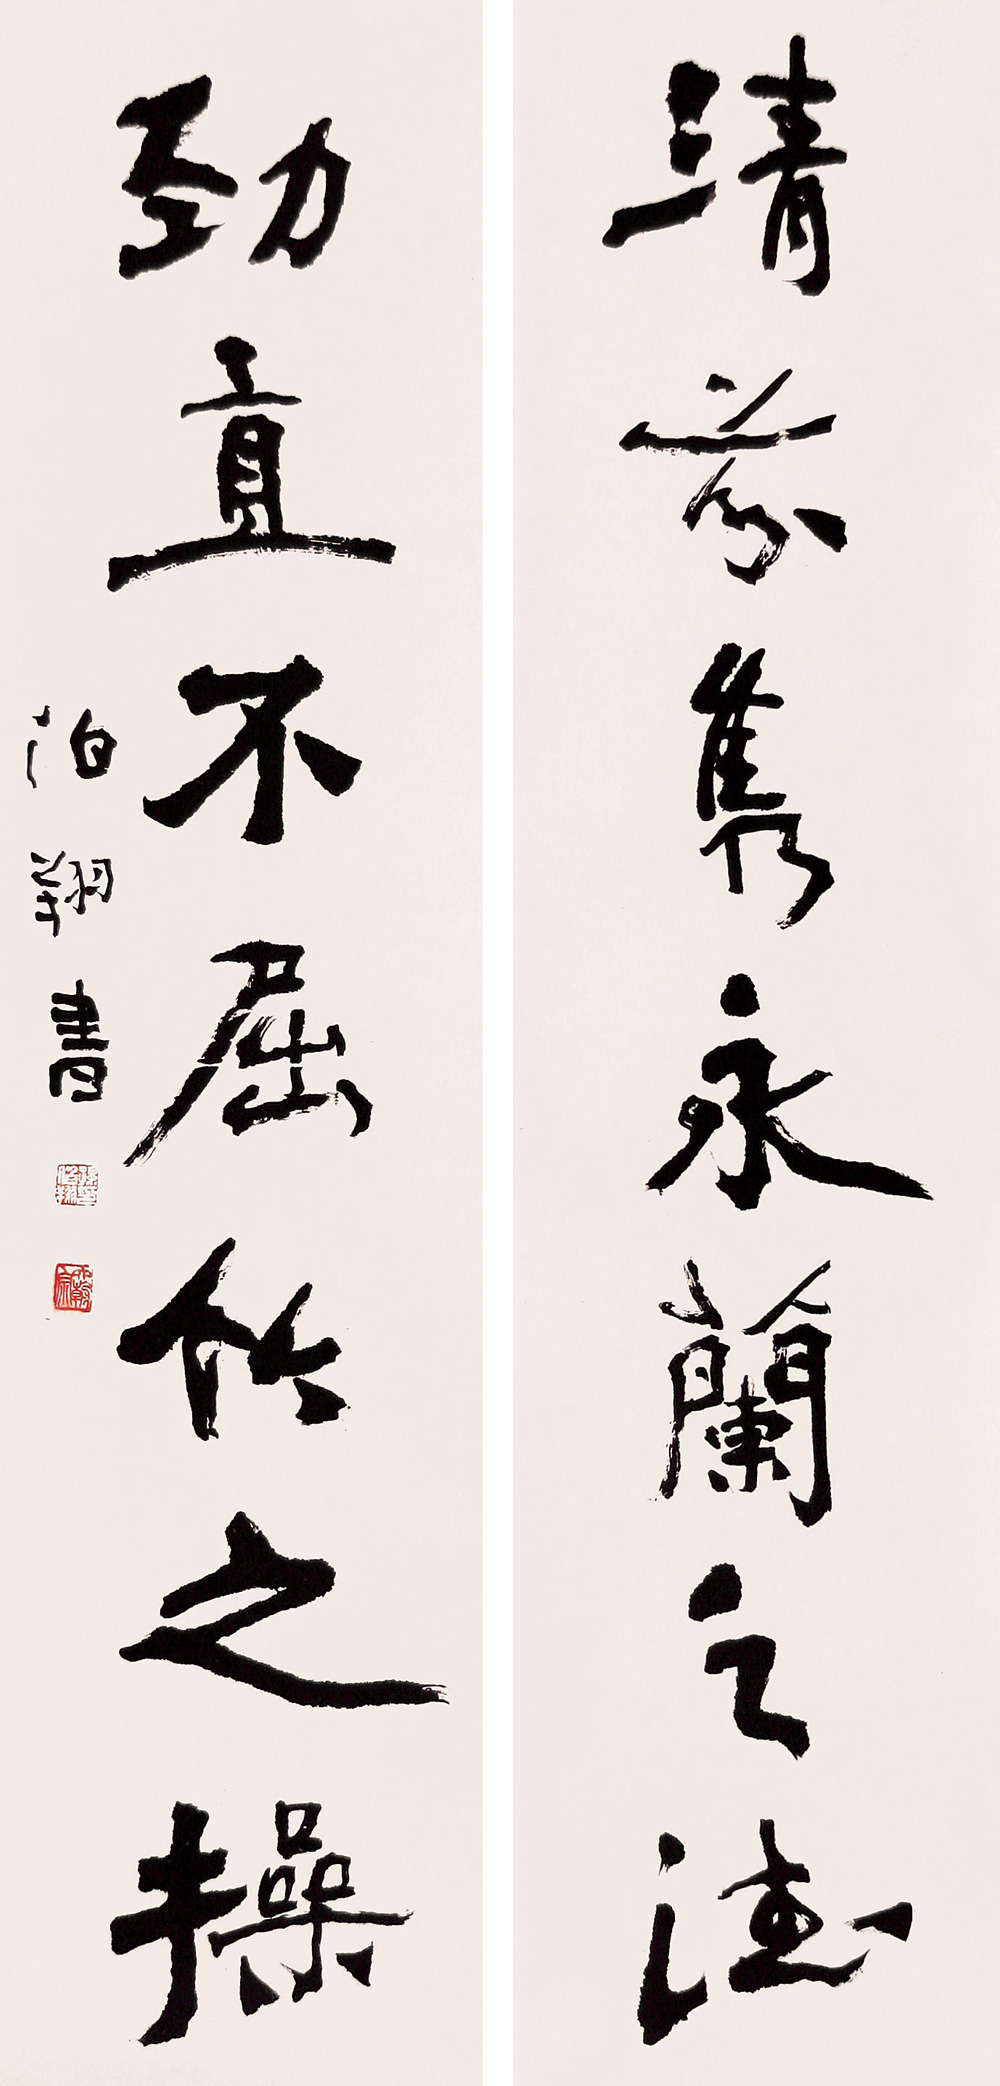 靖芬雋永蘭之德
勁直不屈竹之操
伯翔書